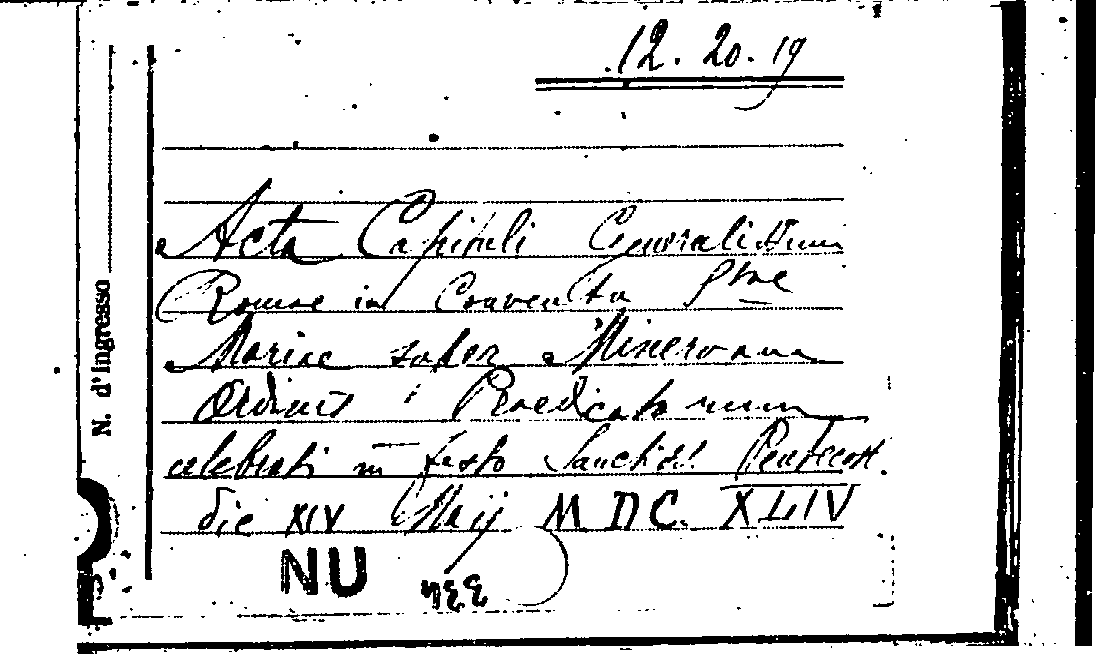 12. 20. 19
Acta Capituli Generalissimi
Romae in Conventu Stae
Mariae super Minervam
Ordinis Praedicatorum
celebrati in festo Sanctiss. Pentecost.
die XIV Maij MDC. XLIV
NU
N. d'Ingresso